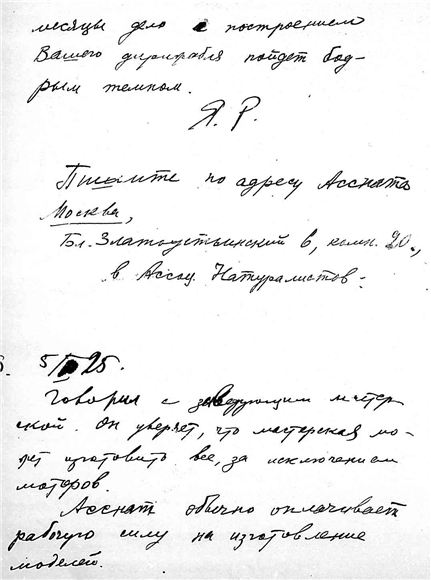 месяцы дело с построением
Вашего дирижабля пойдет бод-
рым темпом.
Я. Р.
Пишите по адресу Ассната
Москва,
Бл. Златоустьинский 6, комн. 20.,
в Ассоц. Натуралистов.
5/ 25.
Говорил с заведующим мастер-
ской. Он уверяет, что мастерская мо-
жет изготовить все, за исключением
моторов.
Асснат обычно оплачивает
рабочую силу на изготовление
моделей.